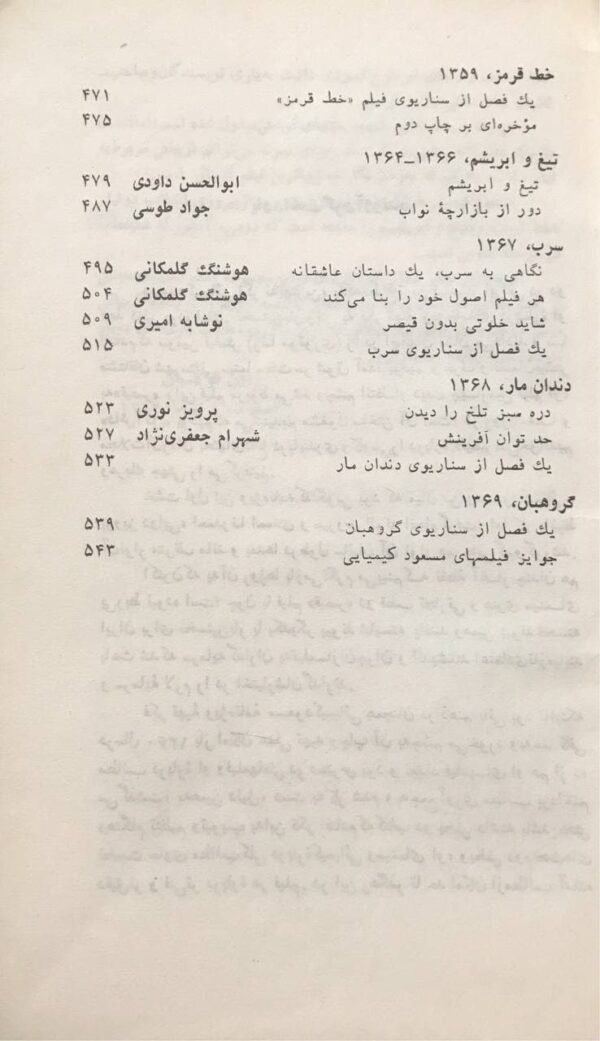 خط قرمز، ۱۳۵۹
يك فصل از سناريوى فيلم «خط قرمز» ۴۷۱
مؤخره‌اى بر چاپ دوم ۴۷۵
تيغ و ابريشم، ۱۳۶۶–۱۳۶۴
تيغ و ابريشم ابوالحسن داودى ۴۷۹
دور از بازارچهٔ نواب جواد طوسى ۴۸۷
سرب، ۱۳۶۷
نگاهى به سرب، يك داستان عاشقانه هوشنگ گلمكانى ۴۹۵
هر فيلم اصول خود را بنا مى‌كند هوشنگ گلمكانى ۵۰۴
شايد خلوتى بدون قيصر نوشابه اميرى ۵۰۹
يك فصل از سناريوى سرب ۵۱۵
دندان مار، ۱۳۶۸
دره سبز تلخ را ديدن پرويز نورى ۵۲۳
حد توان آفرينش شهرام جعفرى‌نژاد ۵۲۷
يك فصل از سناريوى دندان مار ۵۳۳
گروهبان، ۱۳۶۹
يك فصل از سناريوى گروهبان ۵۳۹
جوايز فيلمهاى مسعود كيميايى ۵۴۳